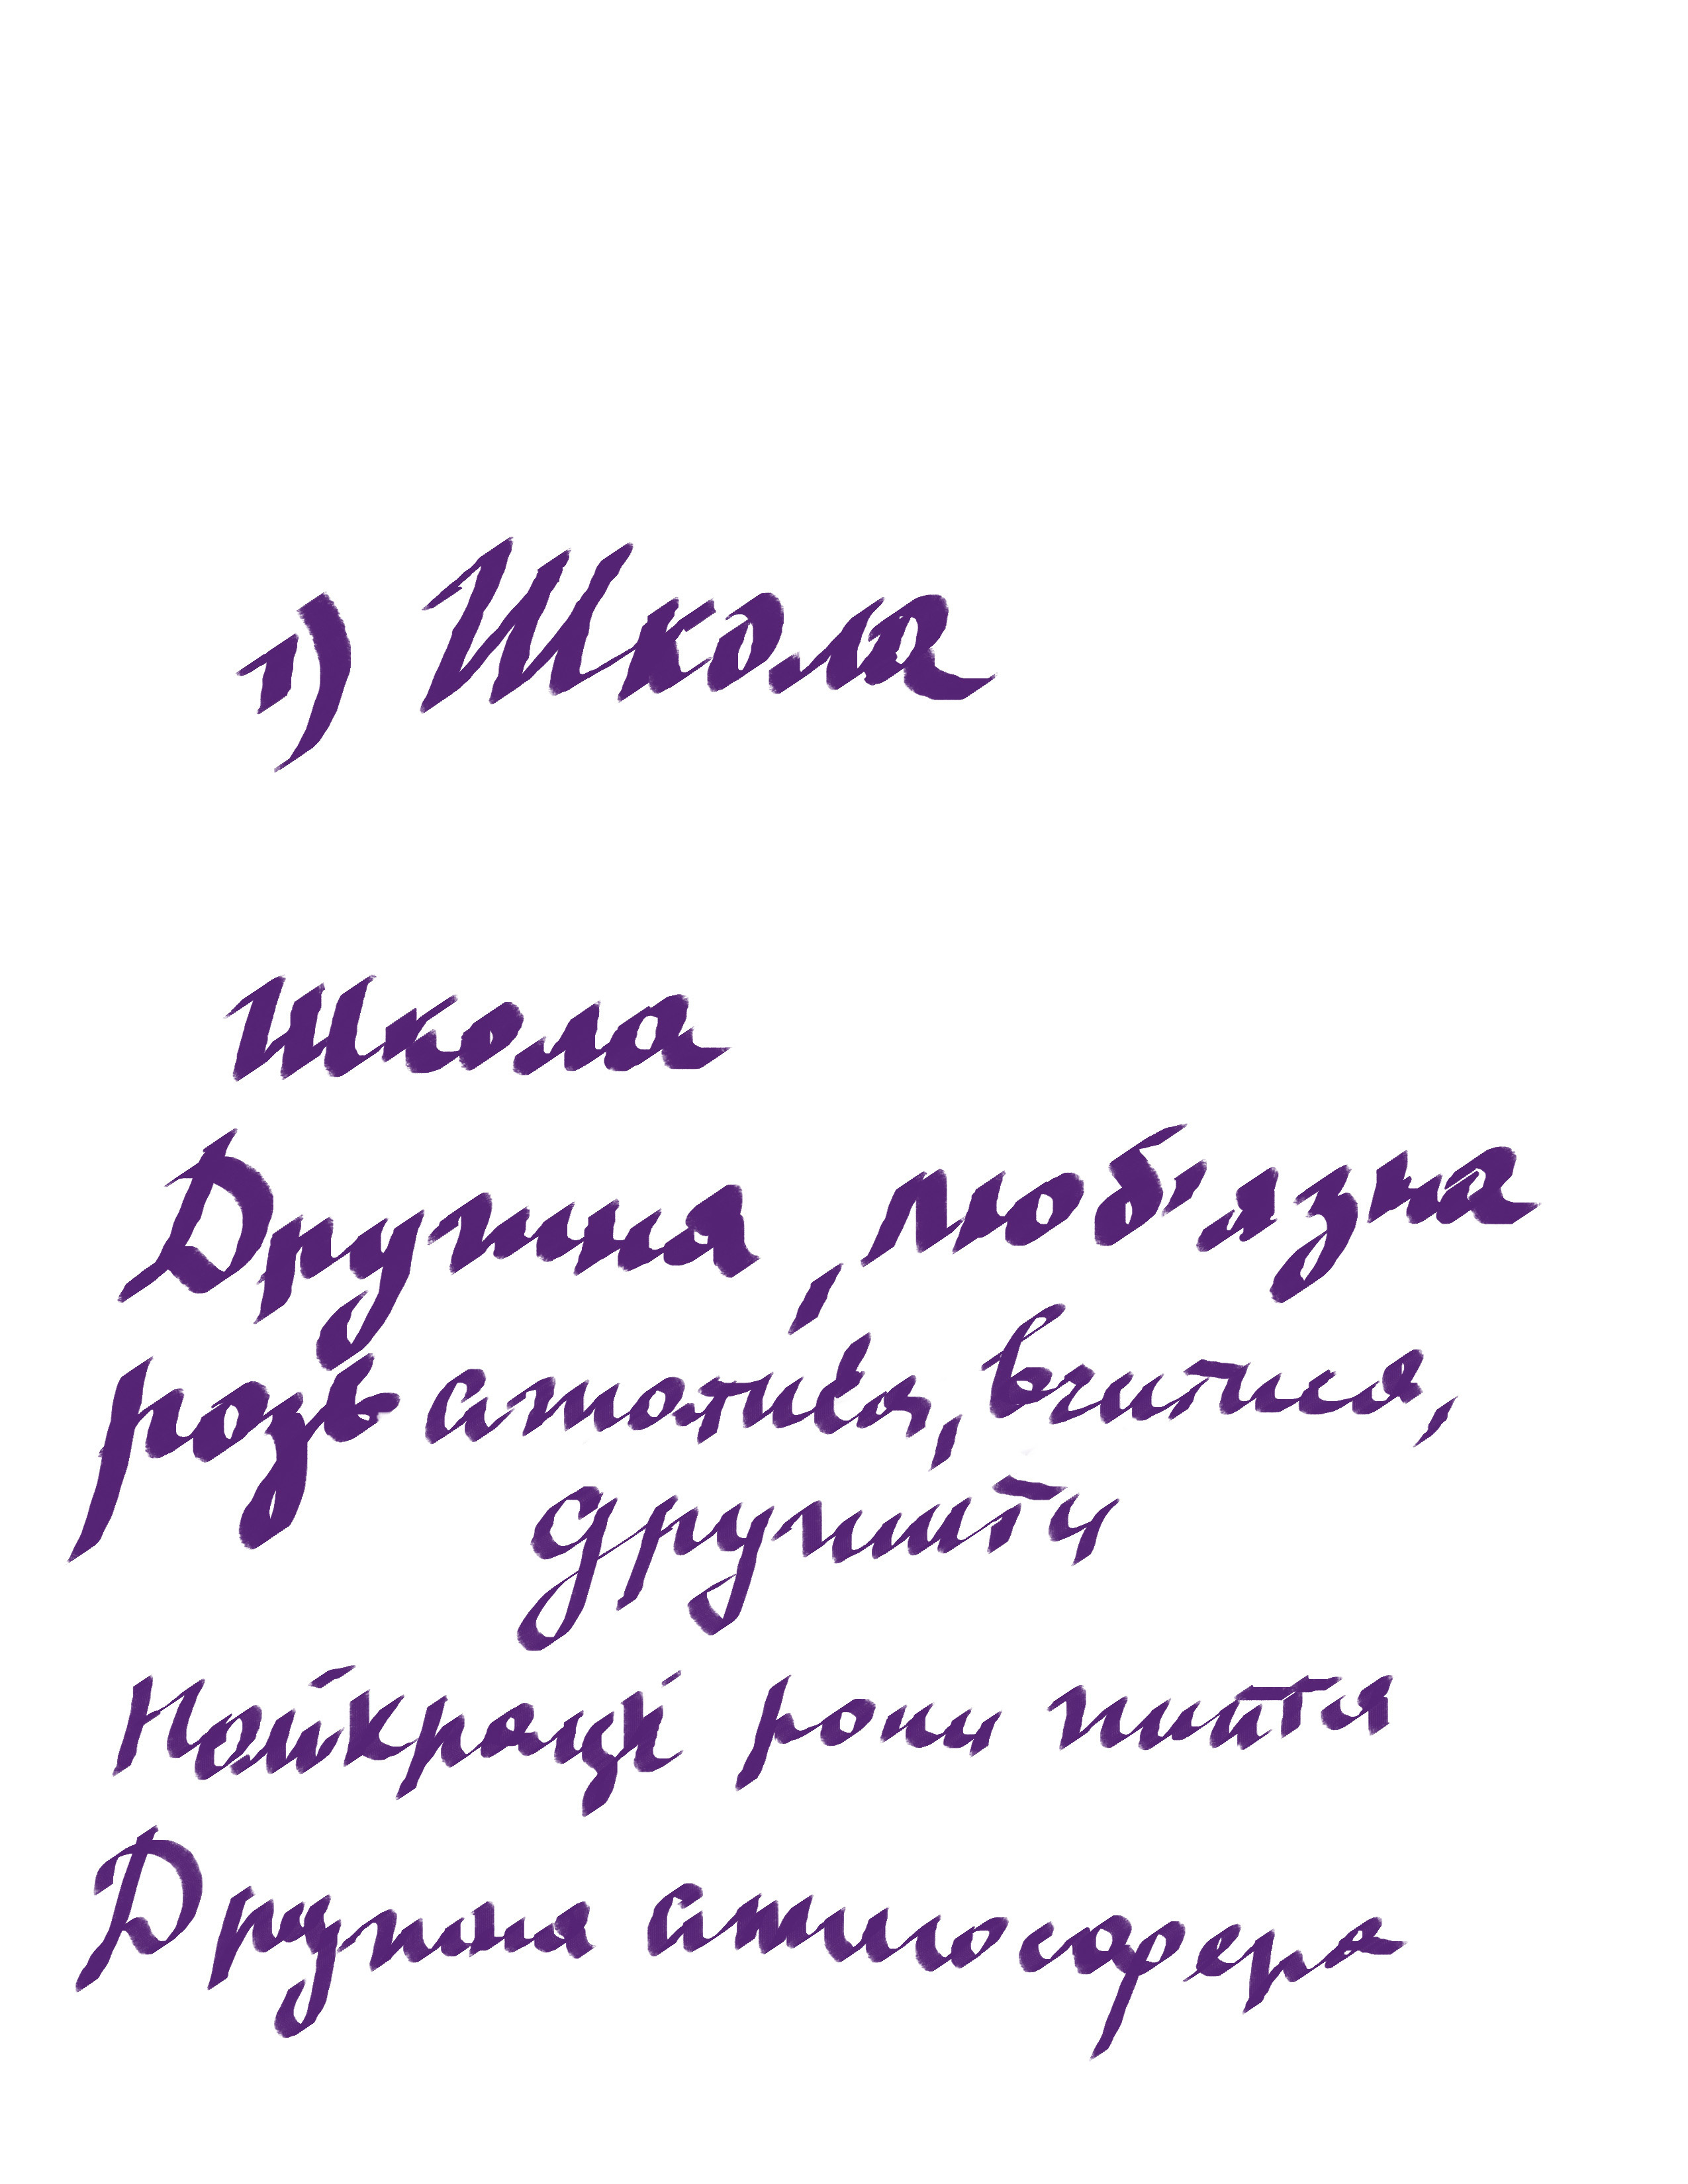 1) Школа
Школа
Дружна, люб'язна
вчитися,
дружити
Найкращі роки життя
Дружна атмосфера